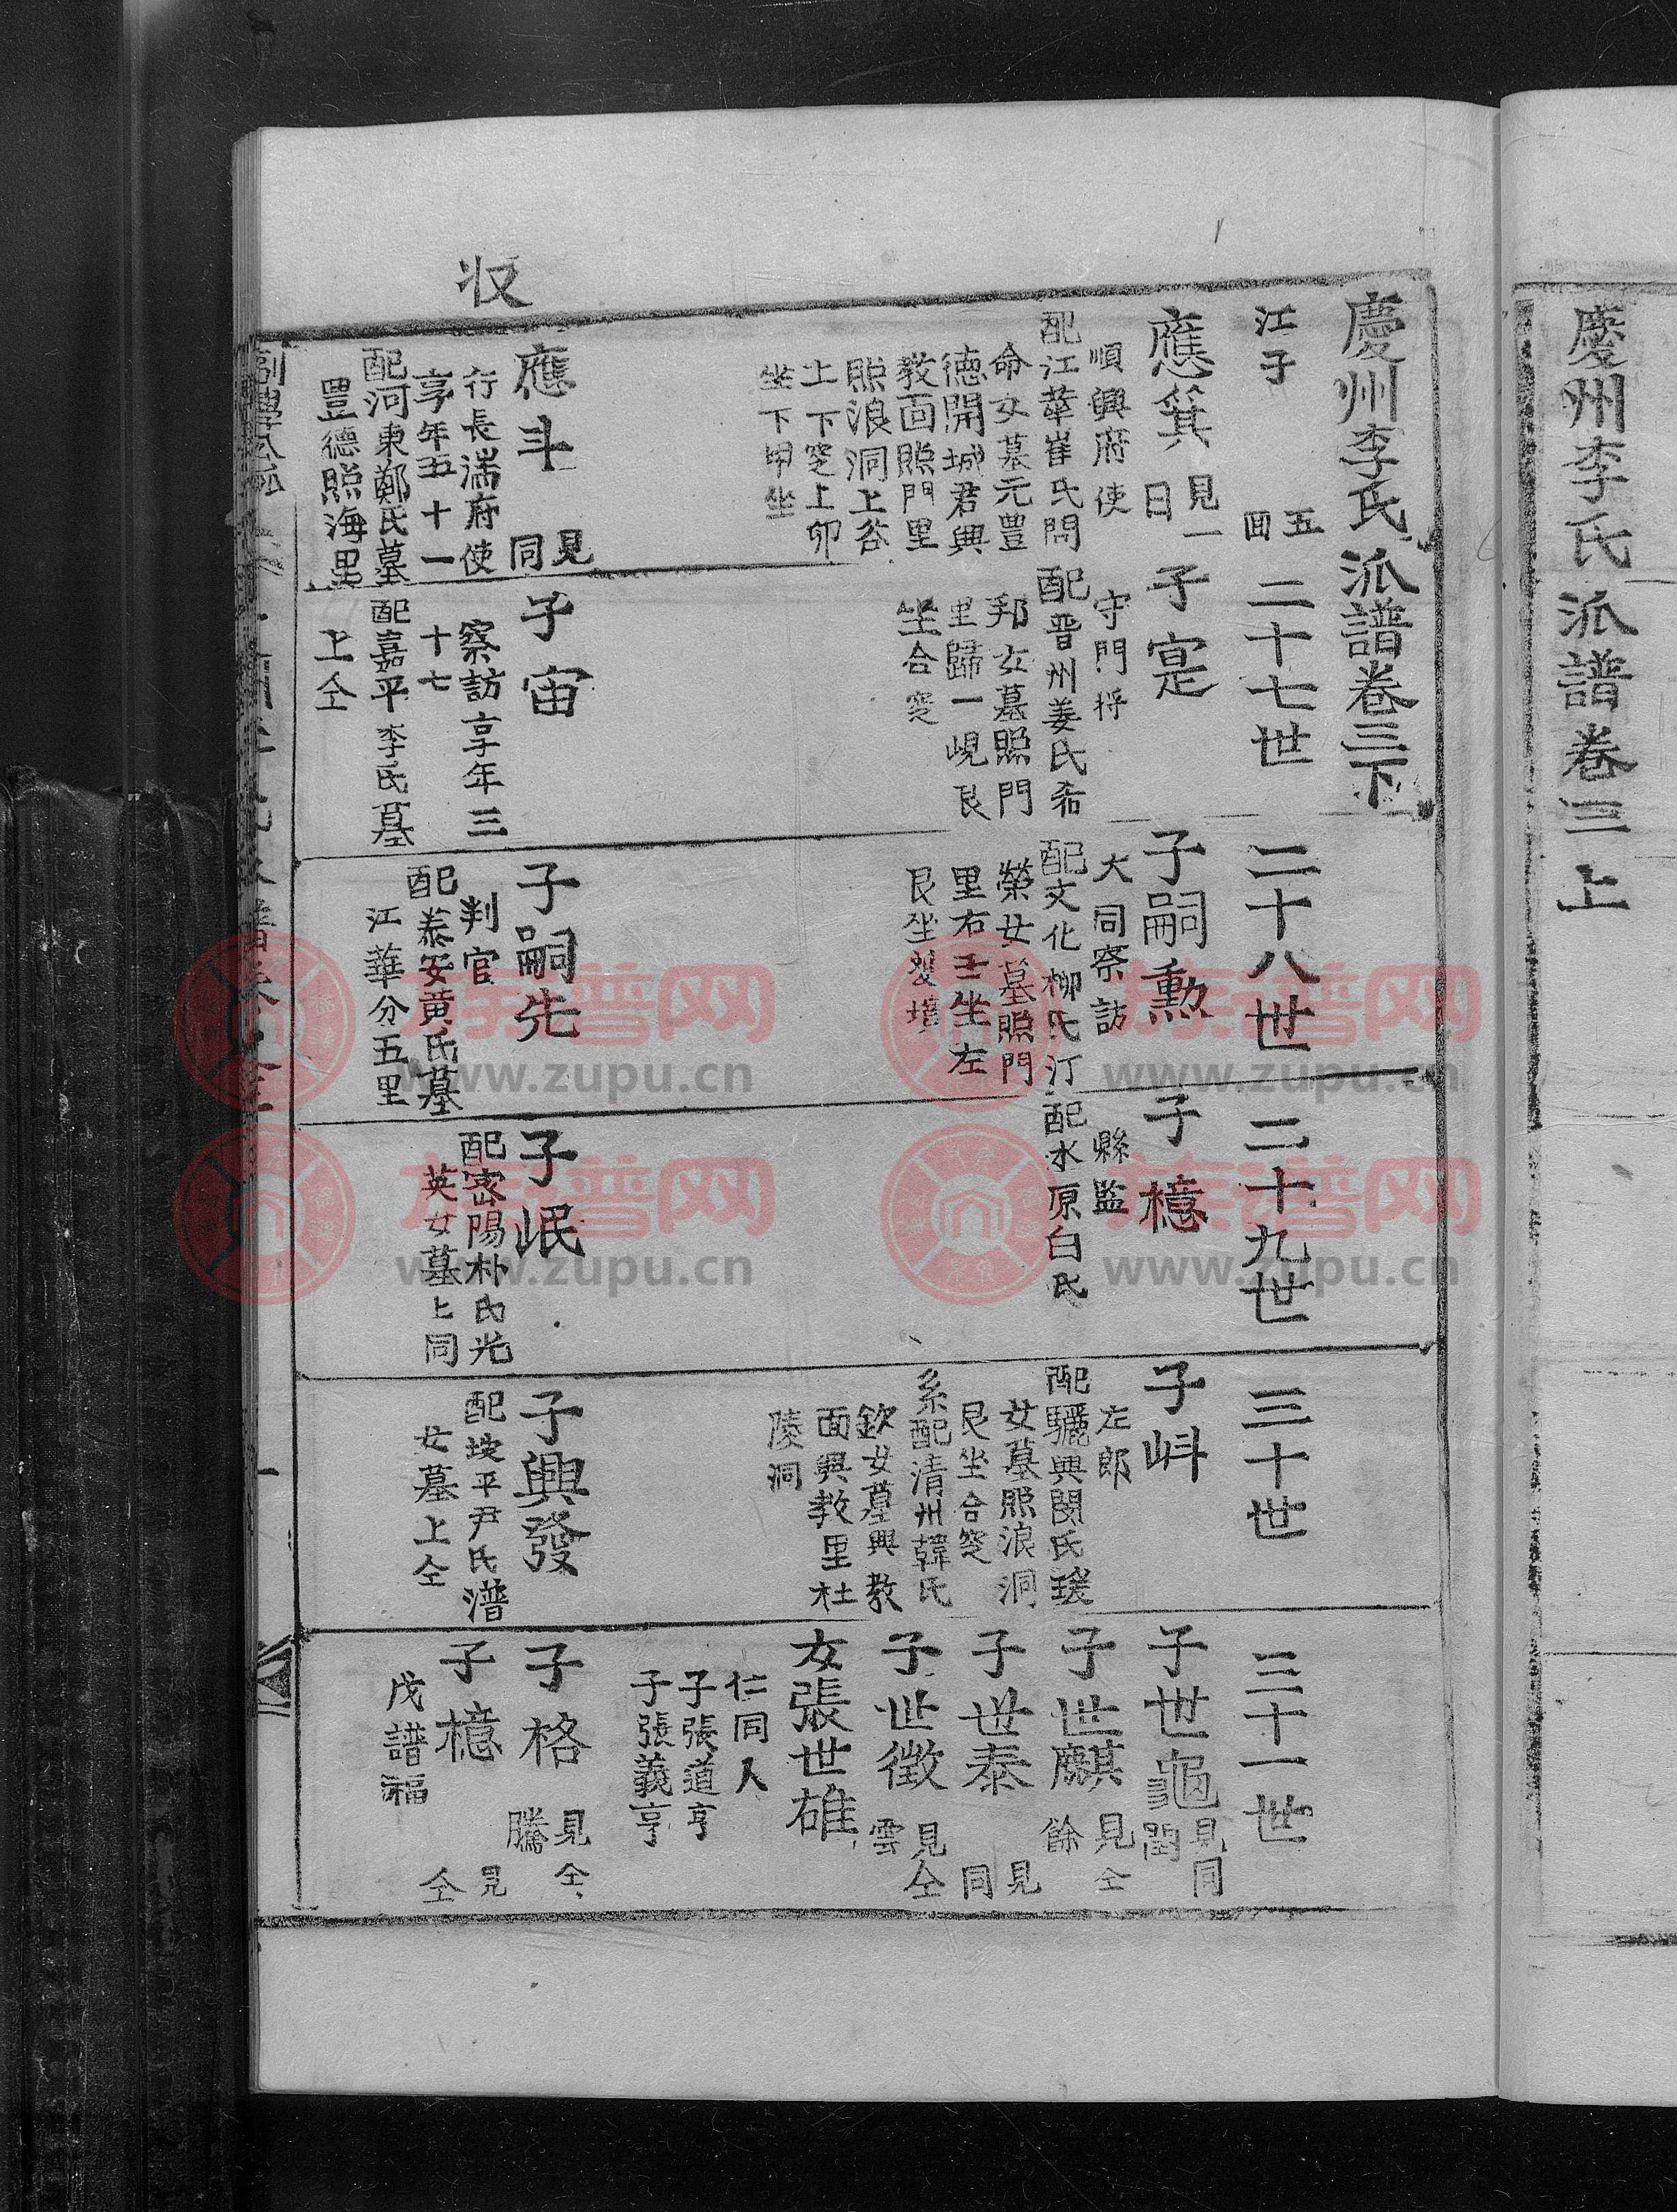 慶州李氏派譜卷三上
慶州李氏派譜卷三下
江子
五
畫
二十七世
二十八世
二十九世
三十世
三十一世
應箕
見一
日
順興府使
配江華崔氏問
命女墓元豊
德開城君興
教面照門里
照浪洞上谷
上下窆上卯
坐下甲坐
子寔
守門將
配晋州姜氏希
邦女墓照門
里歸一峴艮
坐合窆
子嗣勳
大同察訪
配文化柳氏汀
榮女墓照門
里右壬坐左
艮坐双墳
子檍
縣監
配水原白氏
子㞳
左郎
配驪興閔氏瑗
女墓照浪洞
艮坐合窆
系配清州韓氏
欽女墓興教
面興教里杜
陵洞
子世龜
見同
閏
子世麒
見仝
餘
子世泰
見
同
子世徵
見仝
雲
女張世雄
仁同人
子張道亨
子張義亨
收
應斗
見
同
行長湍府使
享年五十一
配河東鄭氏墓
豊德照海里
子宙
察訪享年三
十七
配嘉平李氏墓
上仝
子嗣先
判官
配泰安黄氏墓
江華分五里
子岷
配密陽朴氏光
英女墓上同
子興發
配坡平尹氏潽
女墓上仝
子格
見仝
騰
子檍
見
仝
戊譜福
族谱网
www.zupu.cn
族谱网
www.zupu.cn
族谱网
www.zupu.cn
族谱网
www.zupu.cn